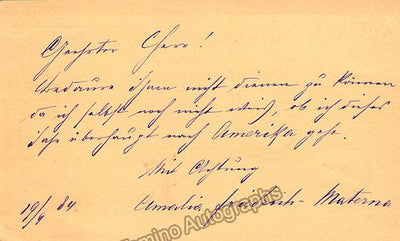 Geehrter Herr!
bedaure ihnen nicht dienen zu können
da ich selbst noch nicht weiß, ob ich dieses
Jahr überhaupt nach Amerika gehe.
Mit Achtung
19/9 84. Amalia Friedrich-Materna
Tamino Autographs